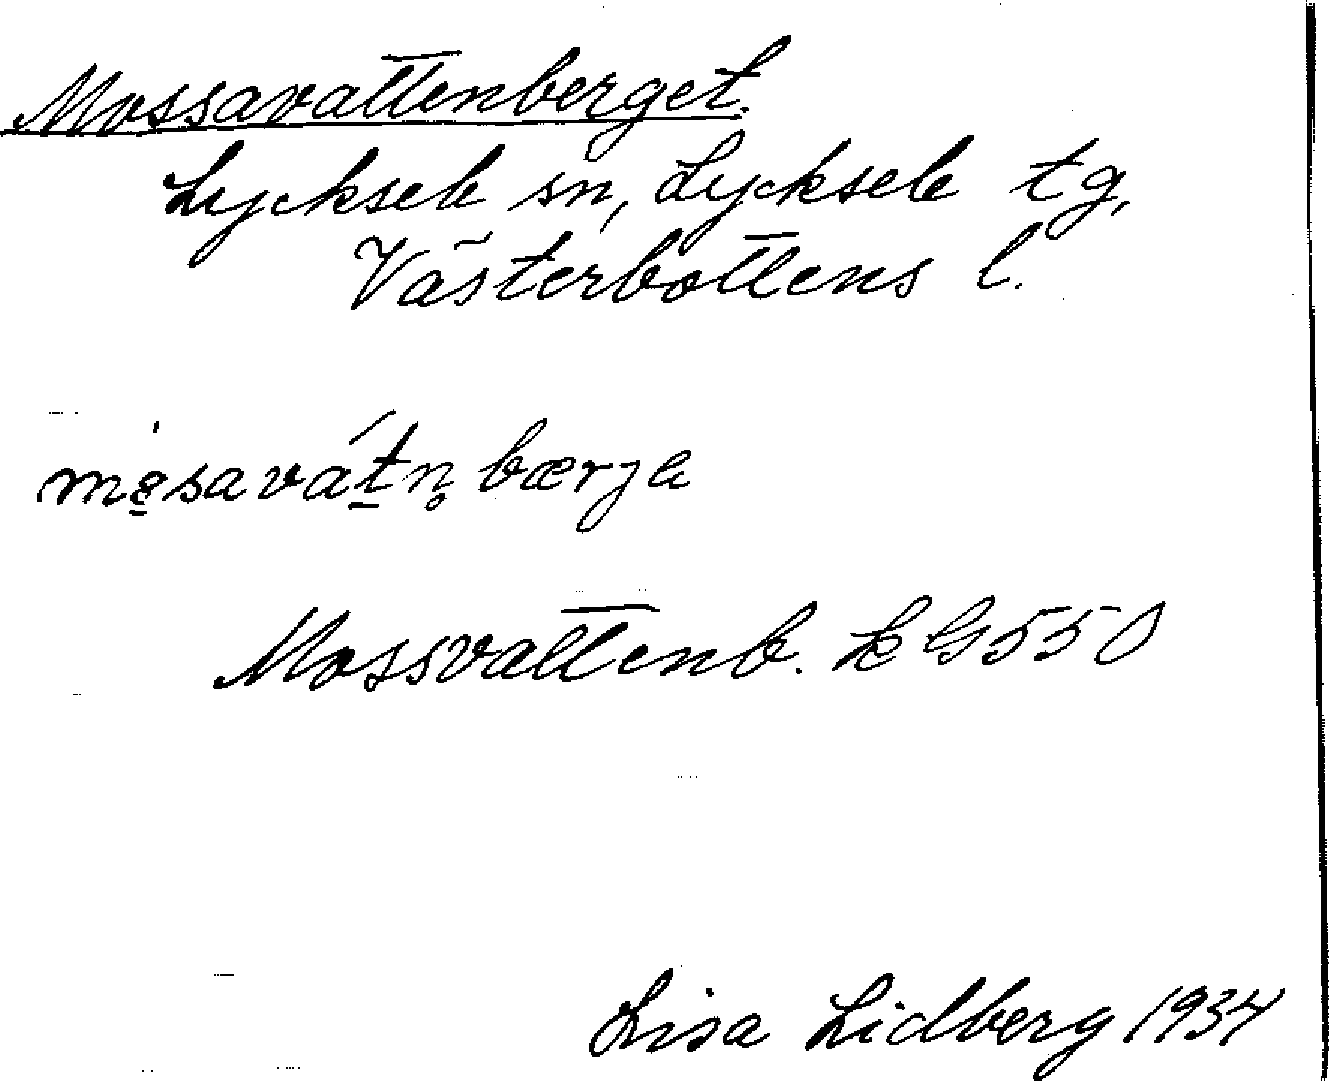 Mossavattenberget.
Lycksele sn, Lycksele tg,
Västerbottens l.
bærja
Mossvattenb. k G 550
Lisa Lidberg 1934